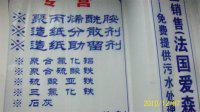 专营
※聚丙烯酰胺
※造纸分散剂
※造纸助留剂
※聚合氯化铝
※聚合硫酸铁
※硫酸亚铁
※三氯化铁
※石灰
销售法国爱森
免费提供污水处理